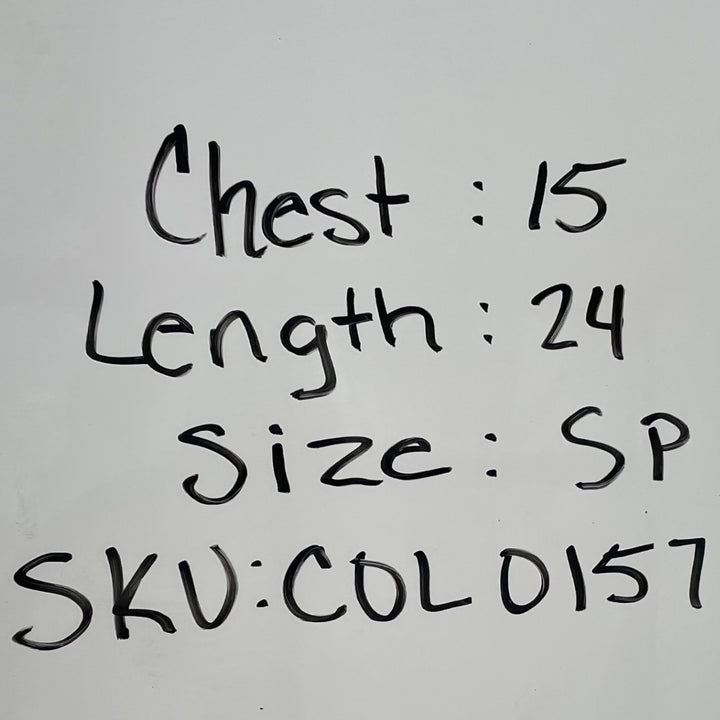 Chest : 15
Length : 24
Size : SP
SKU:COL0157